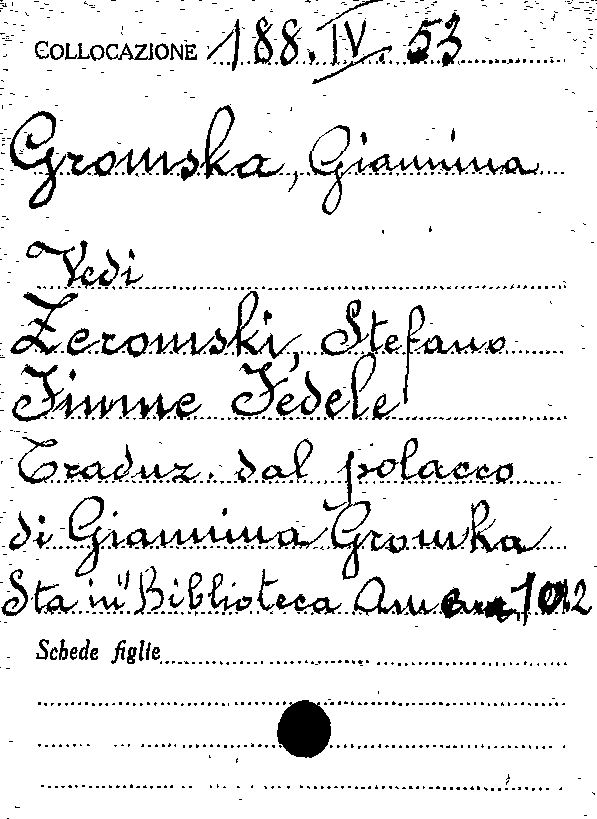 COLLOCAZIONE 188. IV. 53
Gromska, Giannina
Vedi
Zeromski, Stefano
Fiume Fedele
Traduz. dal polacco
di Giannina Gromska
Sta in "Biblioteca
Schede figlie